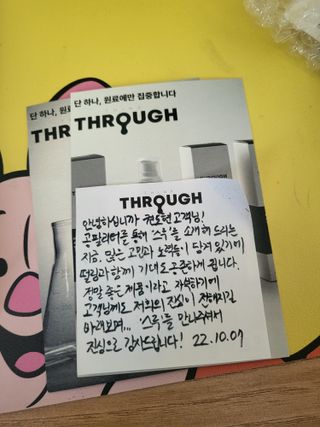 단 하나, 원료에만 집중합니다
THROUGH
단 하나, 원료
THR
THROUGH
안녕하십니까 권도현 고객님!
공팔리터를 통해 '스룩'을 소개해 드리는
지금, 많은 고민과 노력들이 담겨 있기에
떨림과 함께 기대도 공존하게 됩니다.
정말 좋은 제품이라고 자부하기에
고객님께도 저희의 진심이 전해지길
바래보며... '스룩'을 만나주셔서
진심으로 감사드립니다! 22.10.07